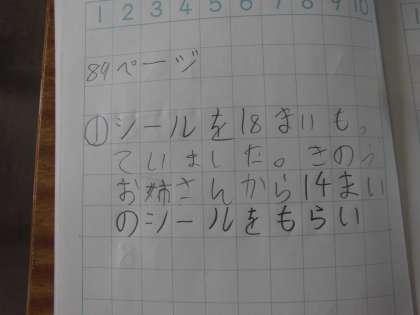 1 2 3 4 5 6 7 8 9 10
89ページ
①シールを18まいもっ
ていました。きのう
お姉さんから14まい
のシールをもらい